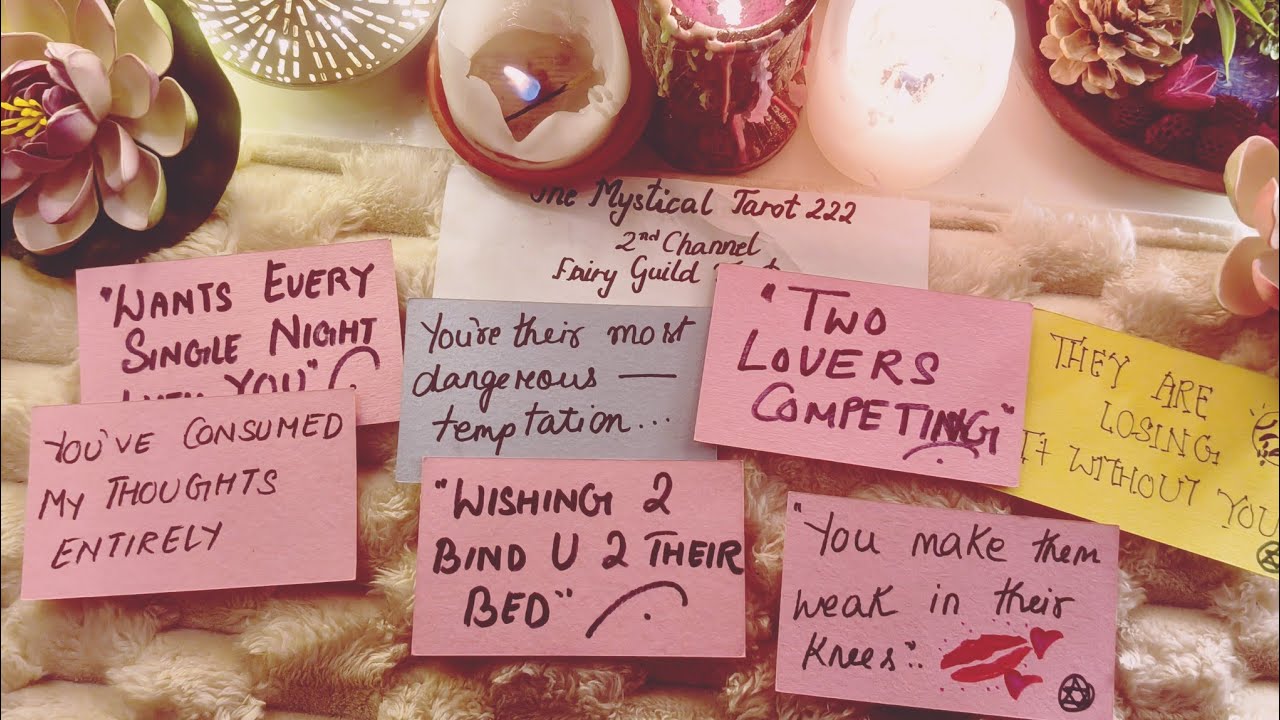 The Mystical Tarot 222
2nd Channel
Fairy Guild
"WANTS EVERY
SINGLE NIGHT
WITH YOU"
You're their most
dangerous —
temptation...
"TWO
LOVERS
COMPETING"
THEY ARE
LOSING
IT WITHOUT YOU
YOU'VE CONSUMED
MY THOUGHTS
ENTIRELY
"WISHING 2
BIND U 2 THEIR
BED"
"You make them
weak in their
Knees"..